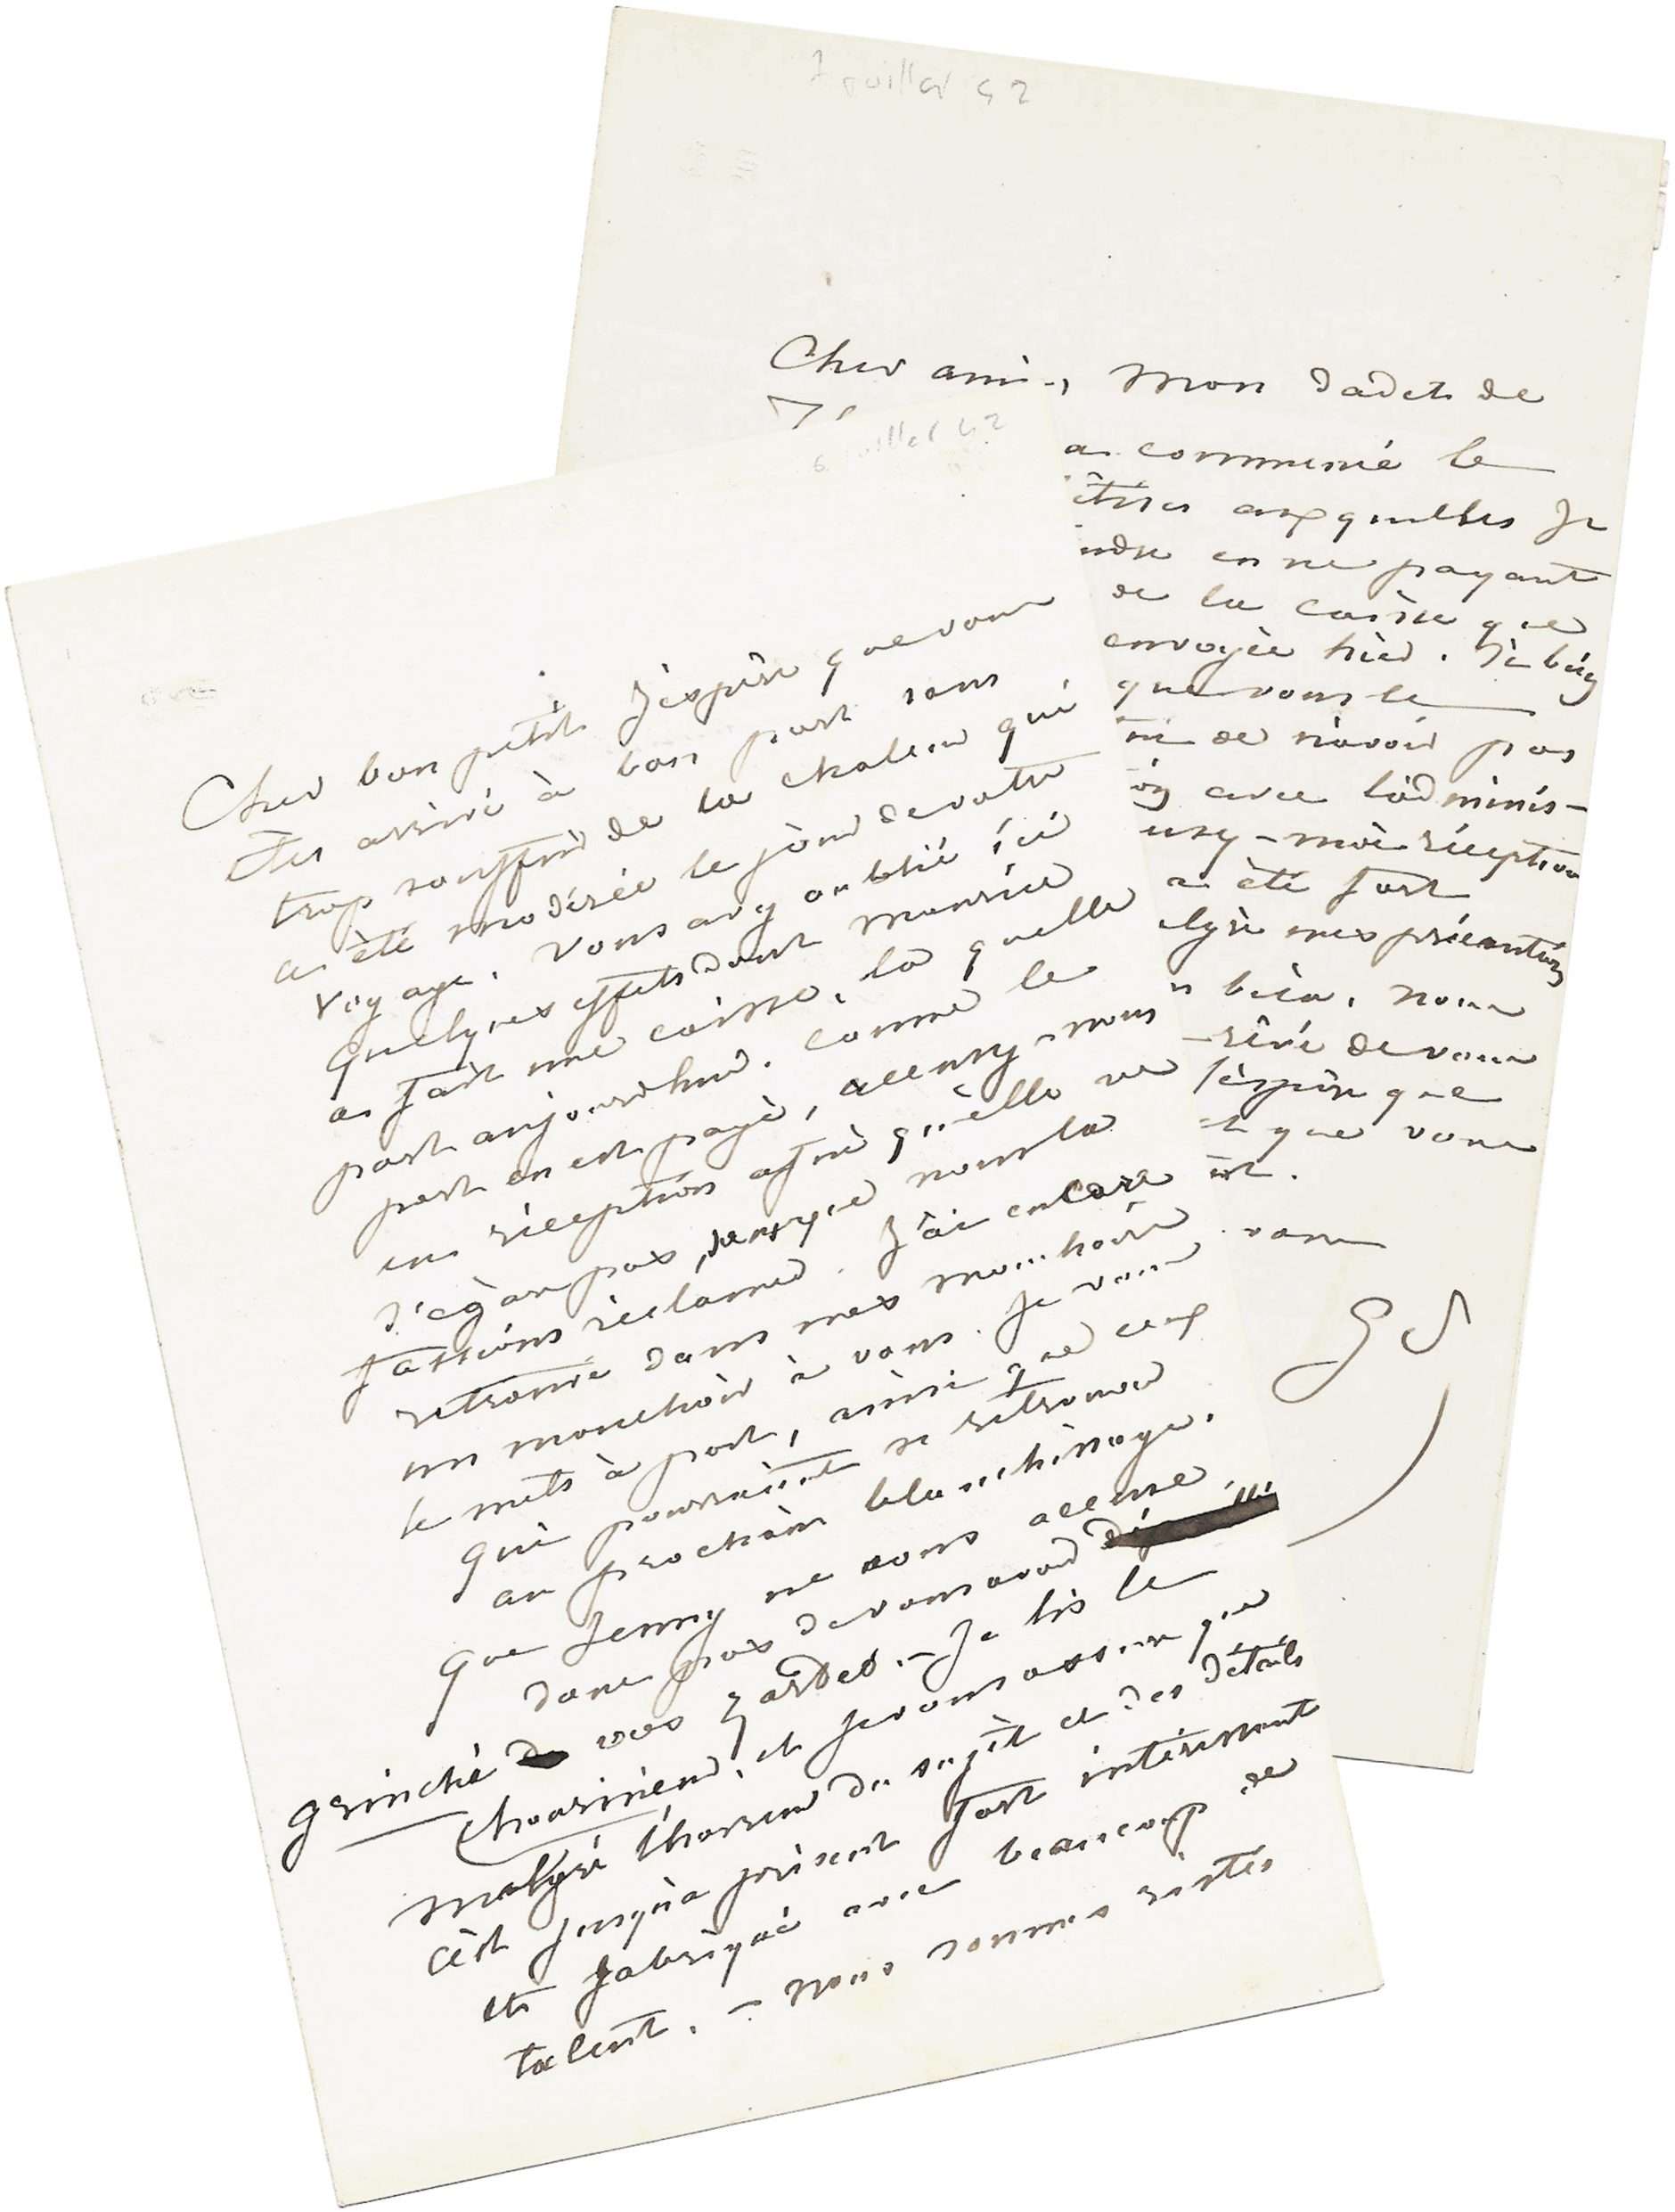 7 juillet 42
Cher ami, mon dadet de
a communié le
auxquelles je
en ne payant
de la caisse que
envoyée hier.
que vous le
de n'avoir pas
avec l'adminis-
moi réception
a été fort
mes précautions
bien. nous
de vous
j'espère que
et que vous
vous
G S
6 juillet 42
Cher bon petit j'espère que vous
êtes arrivé à bon port sans
trop souffrir de la chaleur qui
a été modérée le jour de votre
voyage. Vous avez oublié ici
quelques effets dont Maurice
a fait une caisse, la quelle
part aujourdhui. Comme le
port en est payé, accusez-nous
en réception afin qu'elle ne
s'égare pas, sans que nous la
fassions réclamer. J'ai encore
retrouvé dans mes mouchoirs
un mouchoir à vous. Je vous
le mets à part, ainsi que ceux
qui pourraient se retrouver
au prochain blanchissage.
Que Jenny ne vous accuse
donc pas de vous avoir
grinché vos hardes. – Je lis le
Chourineur, et je vous assure que
malgré l'horreur du sujet et des détails
c'est jusqu'à présent fort intéressant
et fabriqué avec beaucoup de
talent. – nous sommes restés